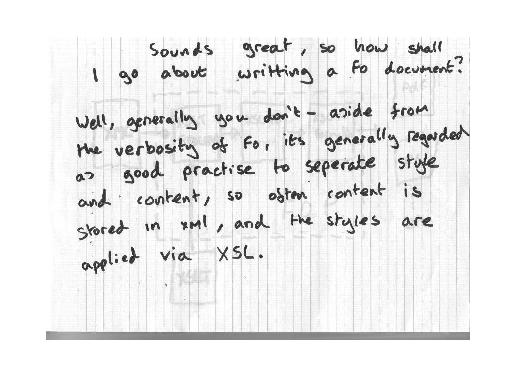 Sounds great, so how shall
I go about writting a FO document?
Well, generally you don't - aside from
the verbosity of FO, its generally regarded
as good practise to seperate style
and content, so often content is
stored in XML, and the styles are
applied via XSL.
XSLT